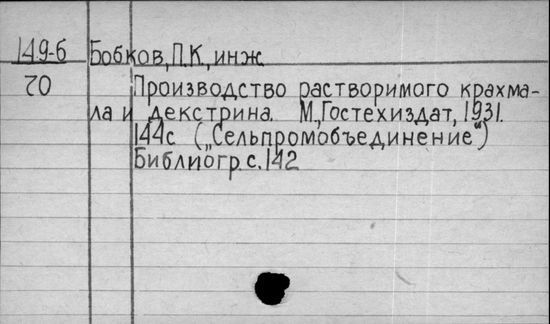 149-б Бобков, П.К., инж.
20 Производство растворимого крахма-
ла и декстрина. М., Гостехиздат, 1931.
144с („Сельпромобъединение“)
Библиогр. с. 142